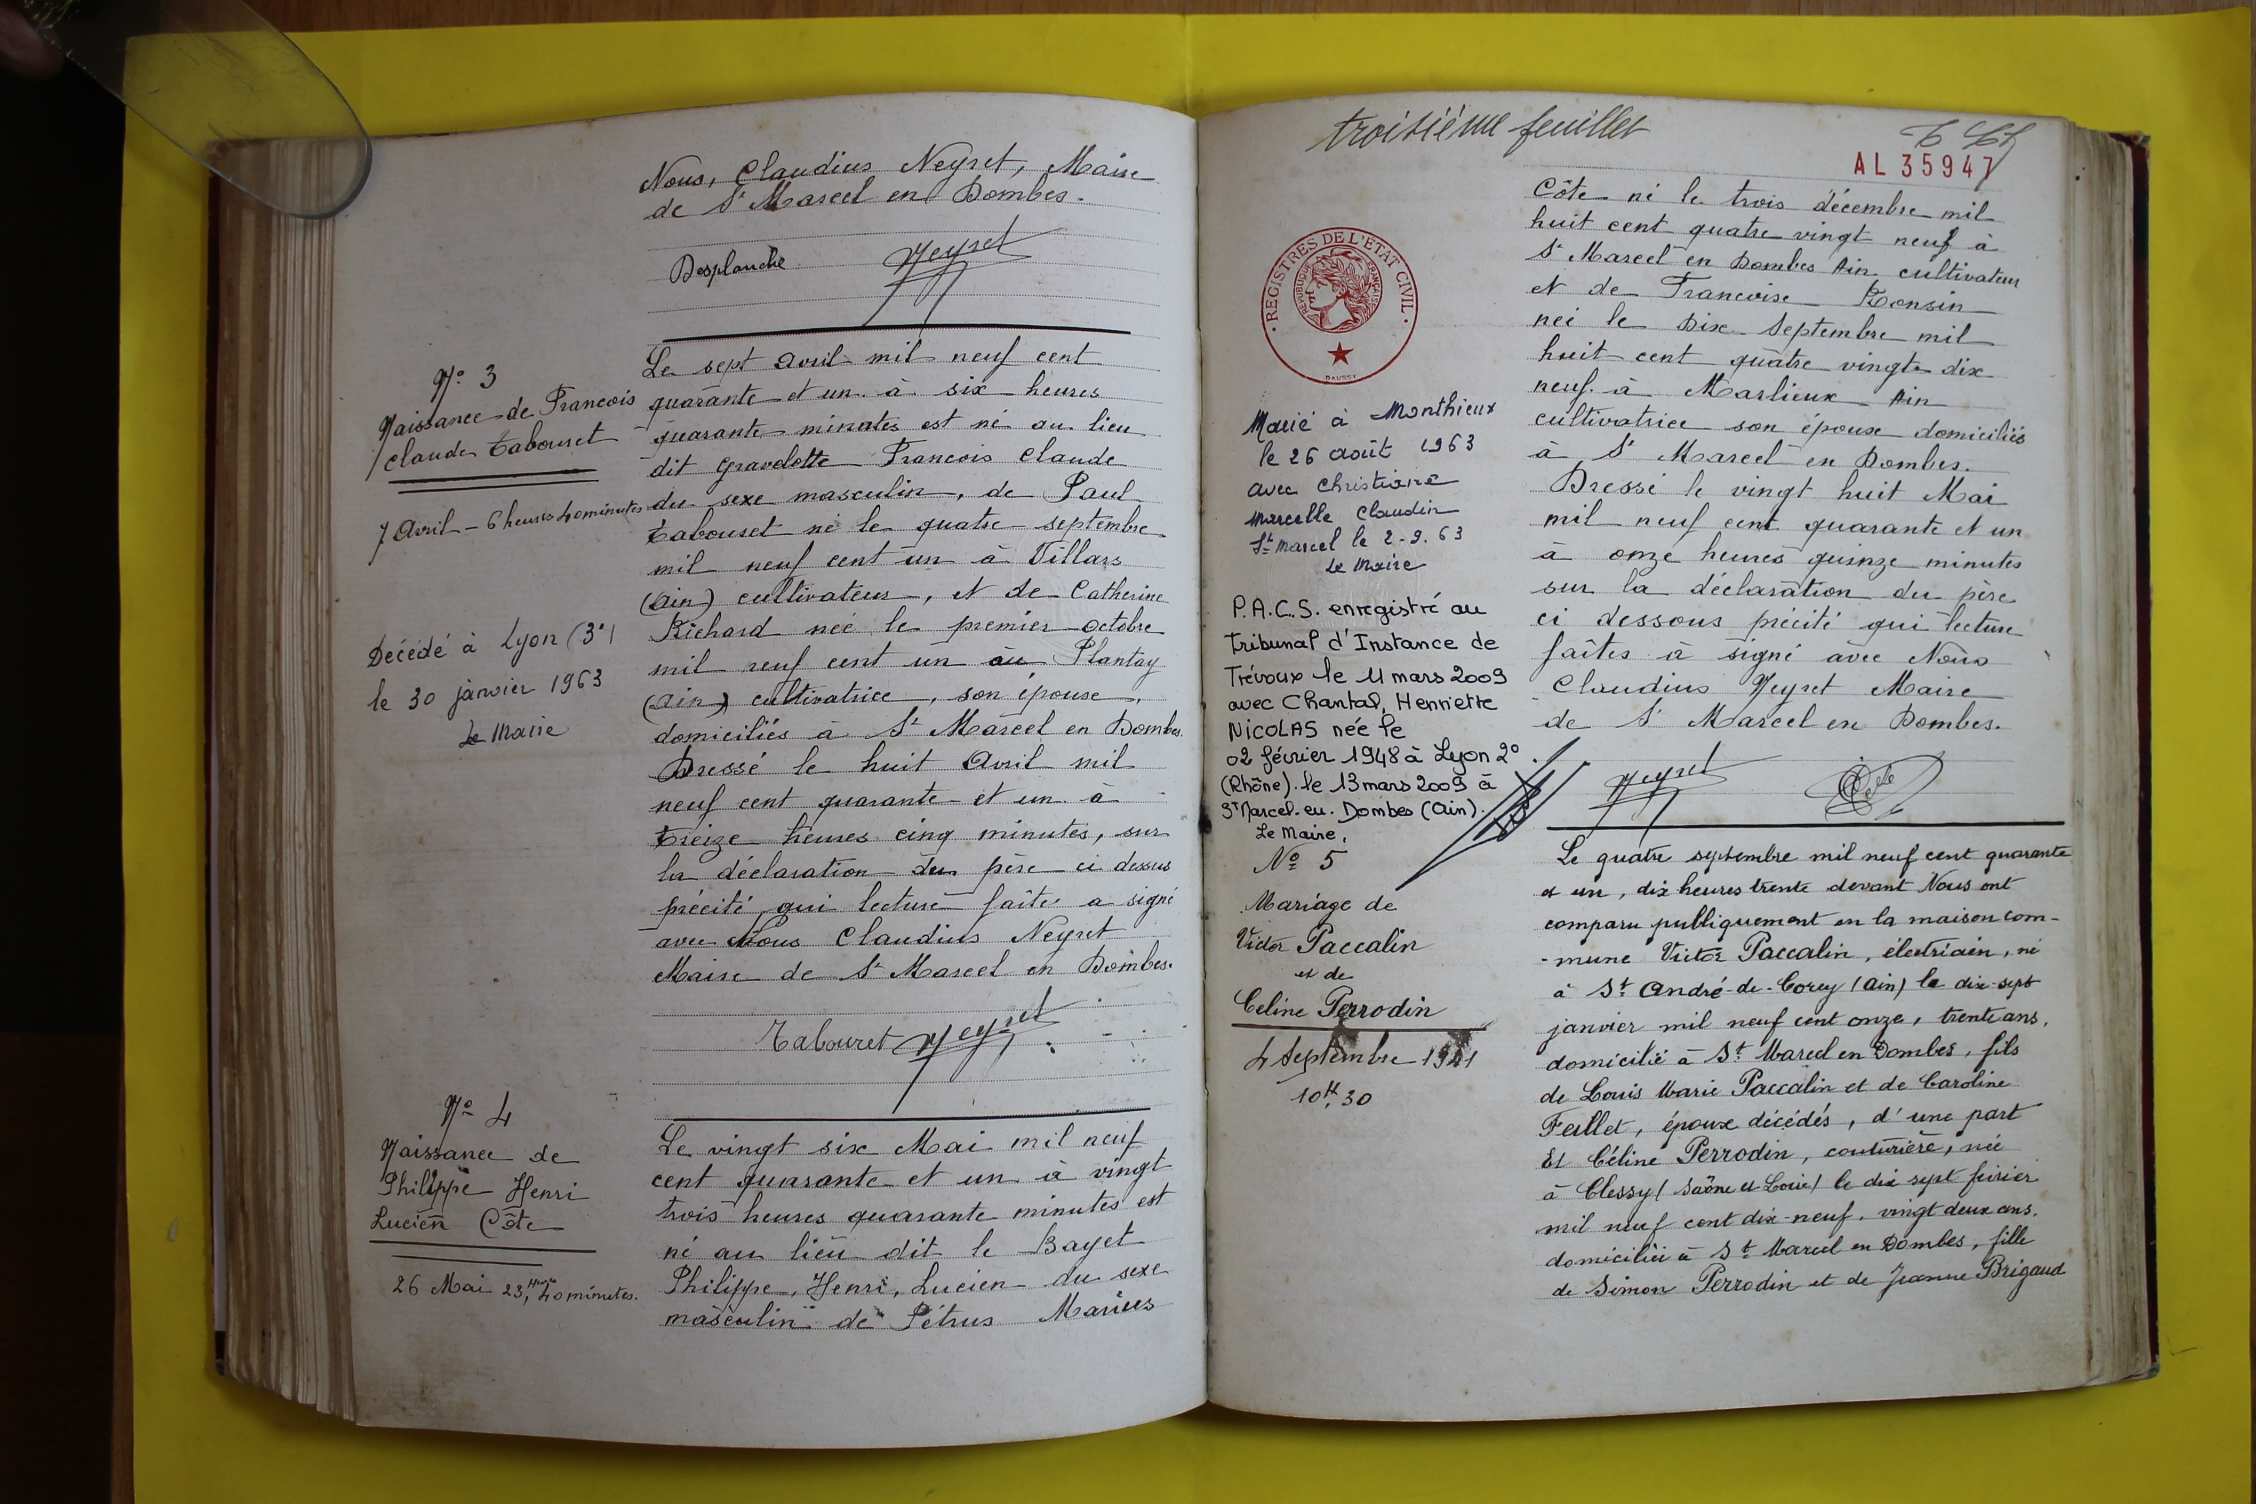 Nous, Claudius Neyret, Maire
de St Marcel en Dombes.
Desplanche Neyret
No 3
Naissance de Francois
Claude Tabouret
7 Avril - 6 heures 40 minutes
Décédé à Lyon (3e)
le 30 janvier 1963
Le Maire
Le sept avril mil neuf cent
quarante et un à six heures
quarante minutes est né au lieu
dit Gravelotte Francois Claude
du sexe masculin, de Paul
Tabouret né le quatre septembre
mil neuf cent un à Villars
(Ain) cultivateur, et de Catherine
Richard née le premier octobre
mil neuf cent un au Plantay
(Ain) cultivatrice, son épouse,
domiciliés à St Marcel en Dombes
Dressé le huit Avril mil
neuf cent quarante et un à
treize heures cinq minutes, sur
la déclaration du père ci dessus
précité qui lecture faite a signé
avec Nous Claudius Neyret
Maire de St Marcel en Dombes.
Tabouret Neyret
No 4
Naissance de
Philippe Henri
Lucien Côte
26 Mai 23 heures 40 minutes.
Le vingt six Mai mil neuf
cent quarante et un à vingt
trois heures quarante minutes est
né au lieu dit le Bayet
Philippe, Henri, Lucien du sexe
masculin de Pétrus Marius
troisième feuillet
AL 35947
REGISTRES DE L'ÉTAT CIVIL
RÉPUBLIQUE FRANÇAISE
DAUSSY
Côte né le trois décembre mil
huit cent quatre vingt neuf à
St Marcel en Dombes Ain cultivateur
et de Francoise Ronsin
née le Dix Septembre mil
huit cent quatre vingt dix
neuf à Marlieux Ain
cultivatrice son épouse domiciliés
à St Marcel en Dombes.
Dressé le vingt huit Mai
mil neuf cent quarante et un
à onze heures quinze minutes
sur la déclaration du père
ci dessous précité qui lecture
faites à signé avec Nous
Claudius Neyret Maire
de St Marcel en Dombes.
Neyret Côte
Marié à Monthieux
le 26 août 1963
avec Christiane
Marcelle Claudin
St Marcel le 2-9.63
Le Maire
P.A.C.S. enregistré au
Tribunal d'Instance de
Trévoux le 11 mars 2009
avec Chantal, Henriette
NICOLAS née le
02 février 1948 à Lyon 2°
(Rhône). le 13 mars 2009 à
St Marcel. en. Dombes (Ain).
Le Maire,
No 5
Mariage de
Victor Paccalin
et de
Celine Perrodin
4 Septembre 1941
10H,30
Le quatre septembre mil neuf cent quarante
et un, dix heures trente devant Nous ont
comparu publiquement en la maison com-
-mune Victor Paccalin, électricien, né
à St André-de-Corcy (Ain) le dix-sept
janvier mil neuf cent onze, trente ans,
domicilié à St Marcel en Dombes, fils
de Louis Marie Paccalin et de Caroline
Feillet, époux décédés, d'une part
Et Céline Perrodin, couturière, née
à Clessy (Saône et Loire) le dix sept février
mil neuf cent dix-neuf, vingt deux ans,
domiciliée à St Marcel en Dombes, fille
de Simon Perrodin et de Jeanne Brigaud